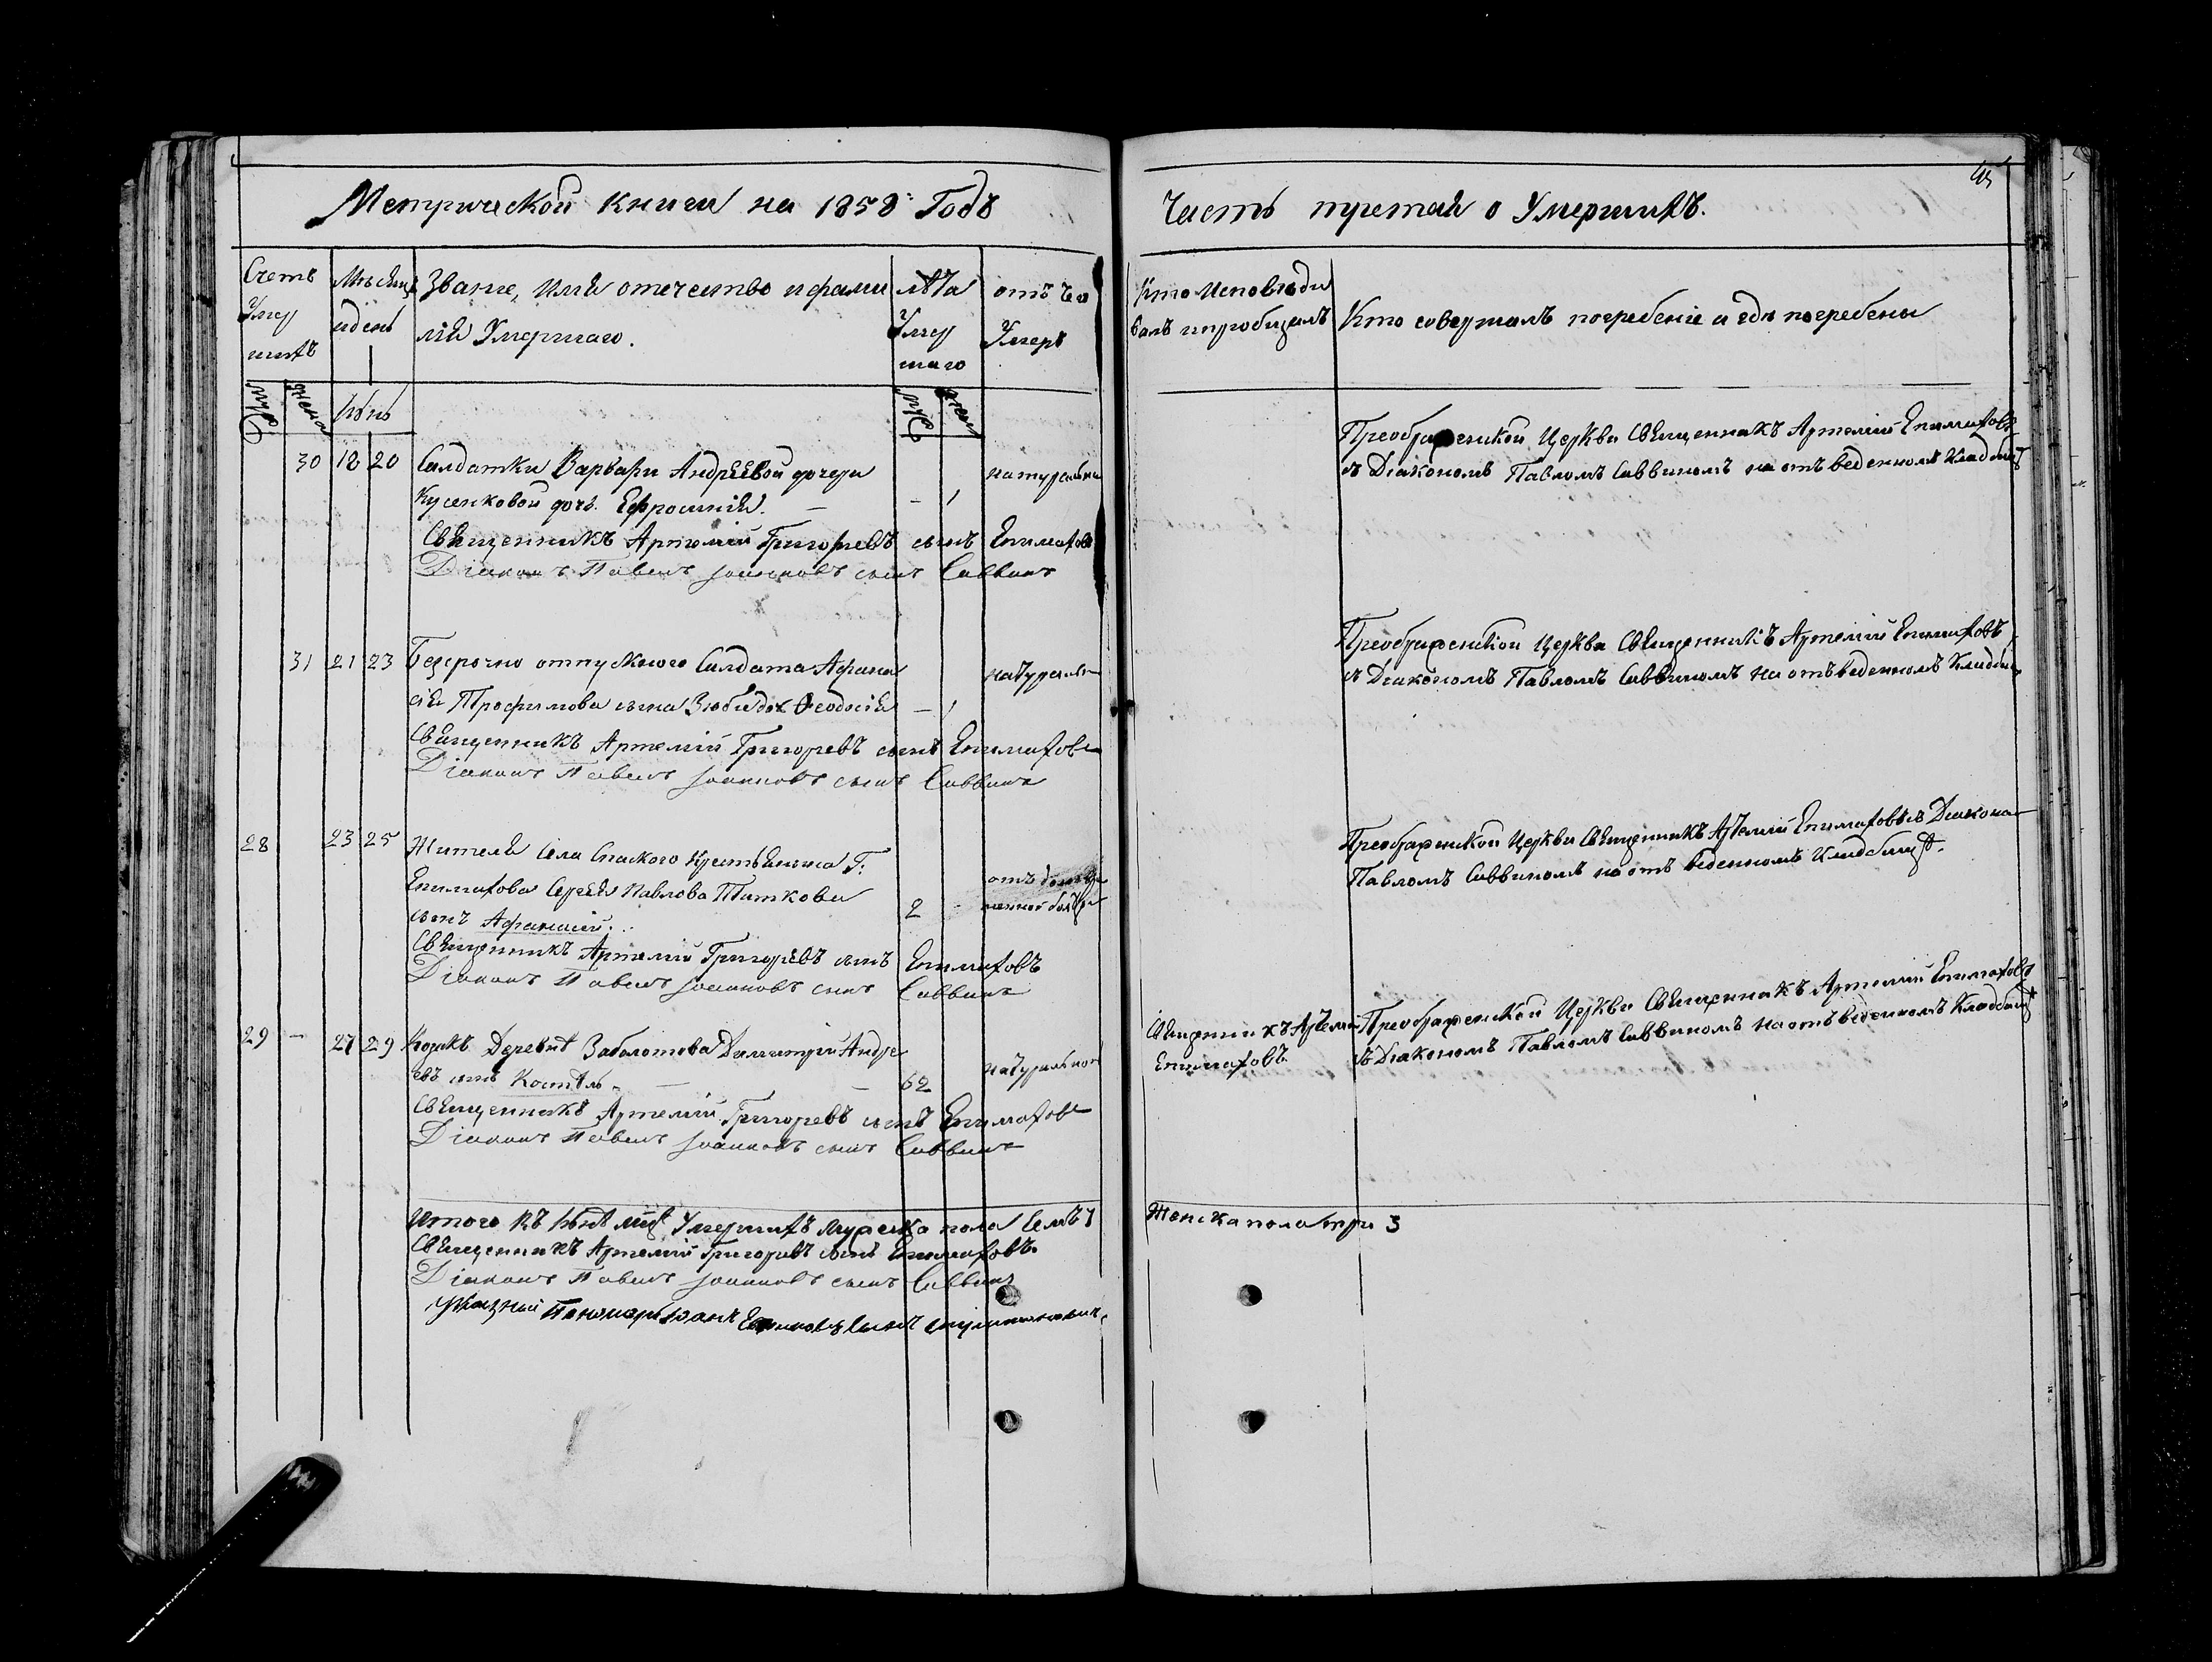 Метрической книги на 1858 Годъ
Часть третая о Умершихъ.
Счетъ Умер шихъ
Мѣсяцъ и день
Званіе, Имя отечество и фами
лія Умершаго.
лѣта Умер шаго
отъ чего Умеръ
Кто Исповѣды
валъ и пробщалъ
Кто совершалъ погребеніе и гдѣ погребены
муж жена
муж жен
30 18 20 Салдатки Варвары Андреевой дочери
Кусенковой дочь Ефросинія. – – 1 натуральна
Священникъ Артемій Григорьевъ сынъ Епимаховъ
Діаконъ Павелъ Іоанновъ сынъ Саввинъ
Преображенской Церкви Священникъ Артемій Епимаховъ
съ Діакономъ Павломъ Саввиномъ на отъведенномъ Кладбищѣ
31 21 23 Безсрочно отпускного Салдата Афана
сія Трофимова сына дочь Ѳеодосія – 1 натураль
Священникъ Артемій Григоревъ сынъ Епимаховъ
Діаконъ Павелъ Іоанновъ сынъ Саввинъ
Преображенской Церкви Священникъ Артемій Епимаховъ
съ Діакономъ Павломъ Саввиномъ на отъведенномъ Кладби
28 23 25 Жителя Села Спаского Крестьянина Г:
Епимахова Сергея Павлова Титкова
сынъ Афанасій. 2 отъ
Священникъ Артемій Григорьевъ сынъ Епимаховъ
Діаконъ Павелъ Іоанновъ сынъ Саввинъ
Преображенской Церкви Священникъ Артемій Епимаховъ съ Діакона
Павломъ Саввиномъ на отъ веденномъ Кладбищѣ.
29 – 27 29 Козакъ Деревнѣ Заболотова Димитрій Андре
евъ сынъ – – 62 натуральной
Священникъ Артемій Григоревъ сынъ Епимаховъ
Діаконъ Павелъ Іоанновъ сынъ Саввинъ
Священникъ Артемій
Епимаховъ.
Преображенской Церкви Священникъ Артемій Епимаховъ
съ Діакономъ Павломъ Саввиномъ на отъведенномъ Кладбищѣ
Итого къ мцѣ Умершихъ Мужеска пола
Женска пола три 3
Священникъ Артемій Григоревъ сынъ Епимаховъ.
Діаконъ Павелъ Іоанновъ сынъ Саввинъ
Указный Пономарь Іоанъ сынъ